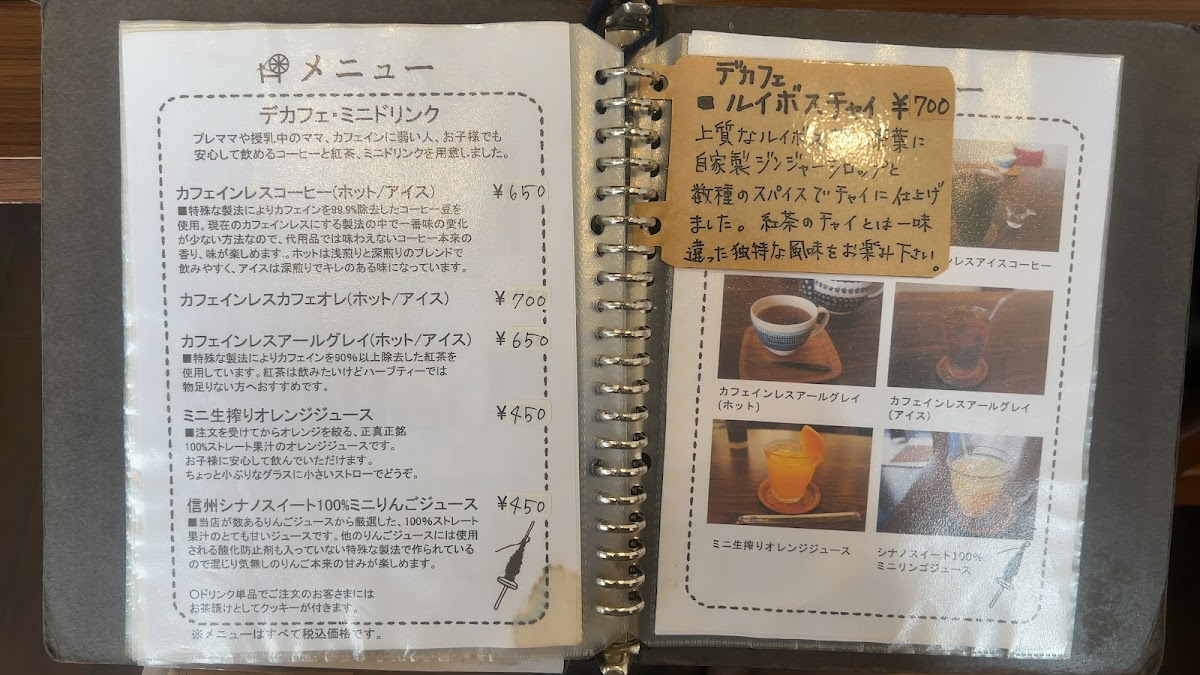 メニュー
デカフェ・ミニドリンク
プレママや授乳中のママ、カフェインに弱い人、お子様でも
安心して飲めるコーヒーと紅茶、ミニドリンクを用意しました。
カフェインレスコーヒー(ホット/アイス) ¥650
■特殊な製法によりカフェインを99.9%除去したコーヒー豆を
使用。現在のカフェインレスにする製法の中で一番味の変化
が少ない方法なので、代用品では味わえないコーヒー本来の
香り、味が楽しめます。。ホットは浅煎りと深煎りのブレンドで
飲みやすく、アイスは深煎りでキレのある味になっています。
カフェインレスカフェオレ(ホット/アイス) ¥700
カフェインレスアールグレイ(ホット/アイス) ¥650
■特殊な製法によりカフェインを90%以上除去した紅茶を
使用しています。紅茶は飲みたいけどハーブティーでは
物足りない方へおすすめです。
ミニ生搾りオレンジジュース ¥450
■注文を受けてからオレンジを絞る、正真正銘
100%ストレート果汁のオレンジジュースです。
お子様に安心して飲んでいただけます。
ちょっと小ぶりなグラスに小さいストローでどうぞ。
信州シナノスイート100%ミニりんごジュース ¥450
■当店が数あるりんごジュースから厳選した、100%ストレート
果汁のとても甘いジュースです。他のりんごジュースには使用
される酸化防止剤も入っていない特殊な製法で作られている
ので混じり気無しのりんご本来の甘みが楽しめます。
○ドリンク単品でご注文のお客さまには
お茶請けとしてクッキーが付きます。
※メニューはすべて税込価格です。
デカフェ
■ ルイボスチャイ ¥700
上質なルイボス 葉に
自家製ジンジャーシロップと
数種のスパイスでチャイに仕上げ
ました。紅茶のチャイとは一味
違った独特な風味をお楽み下さい。
ンレスアイスコーヒー
カフェインレスアールグレイ
(ホット)
カフェインレスアールグレイ
(アイス)
ミニ生搾りオレンジジュース
シナノスイート100%
ミニリンゴジュース